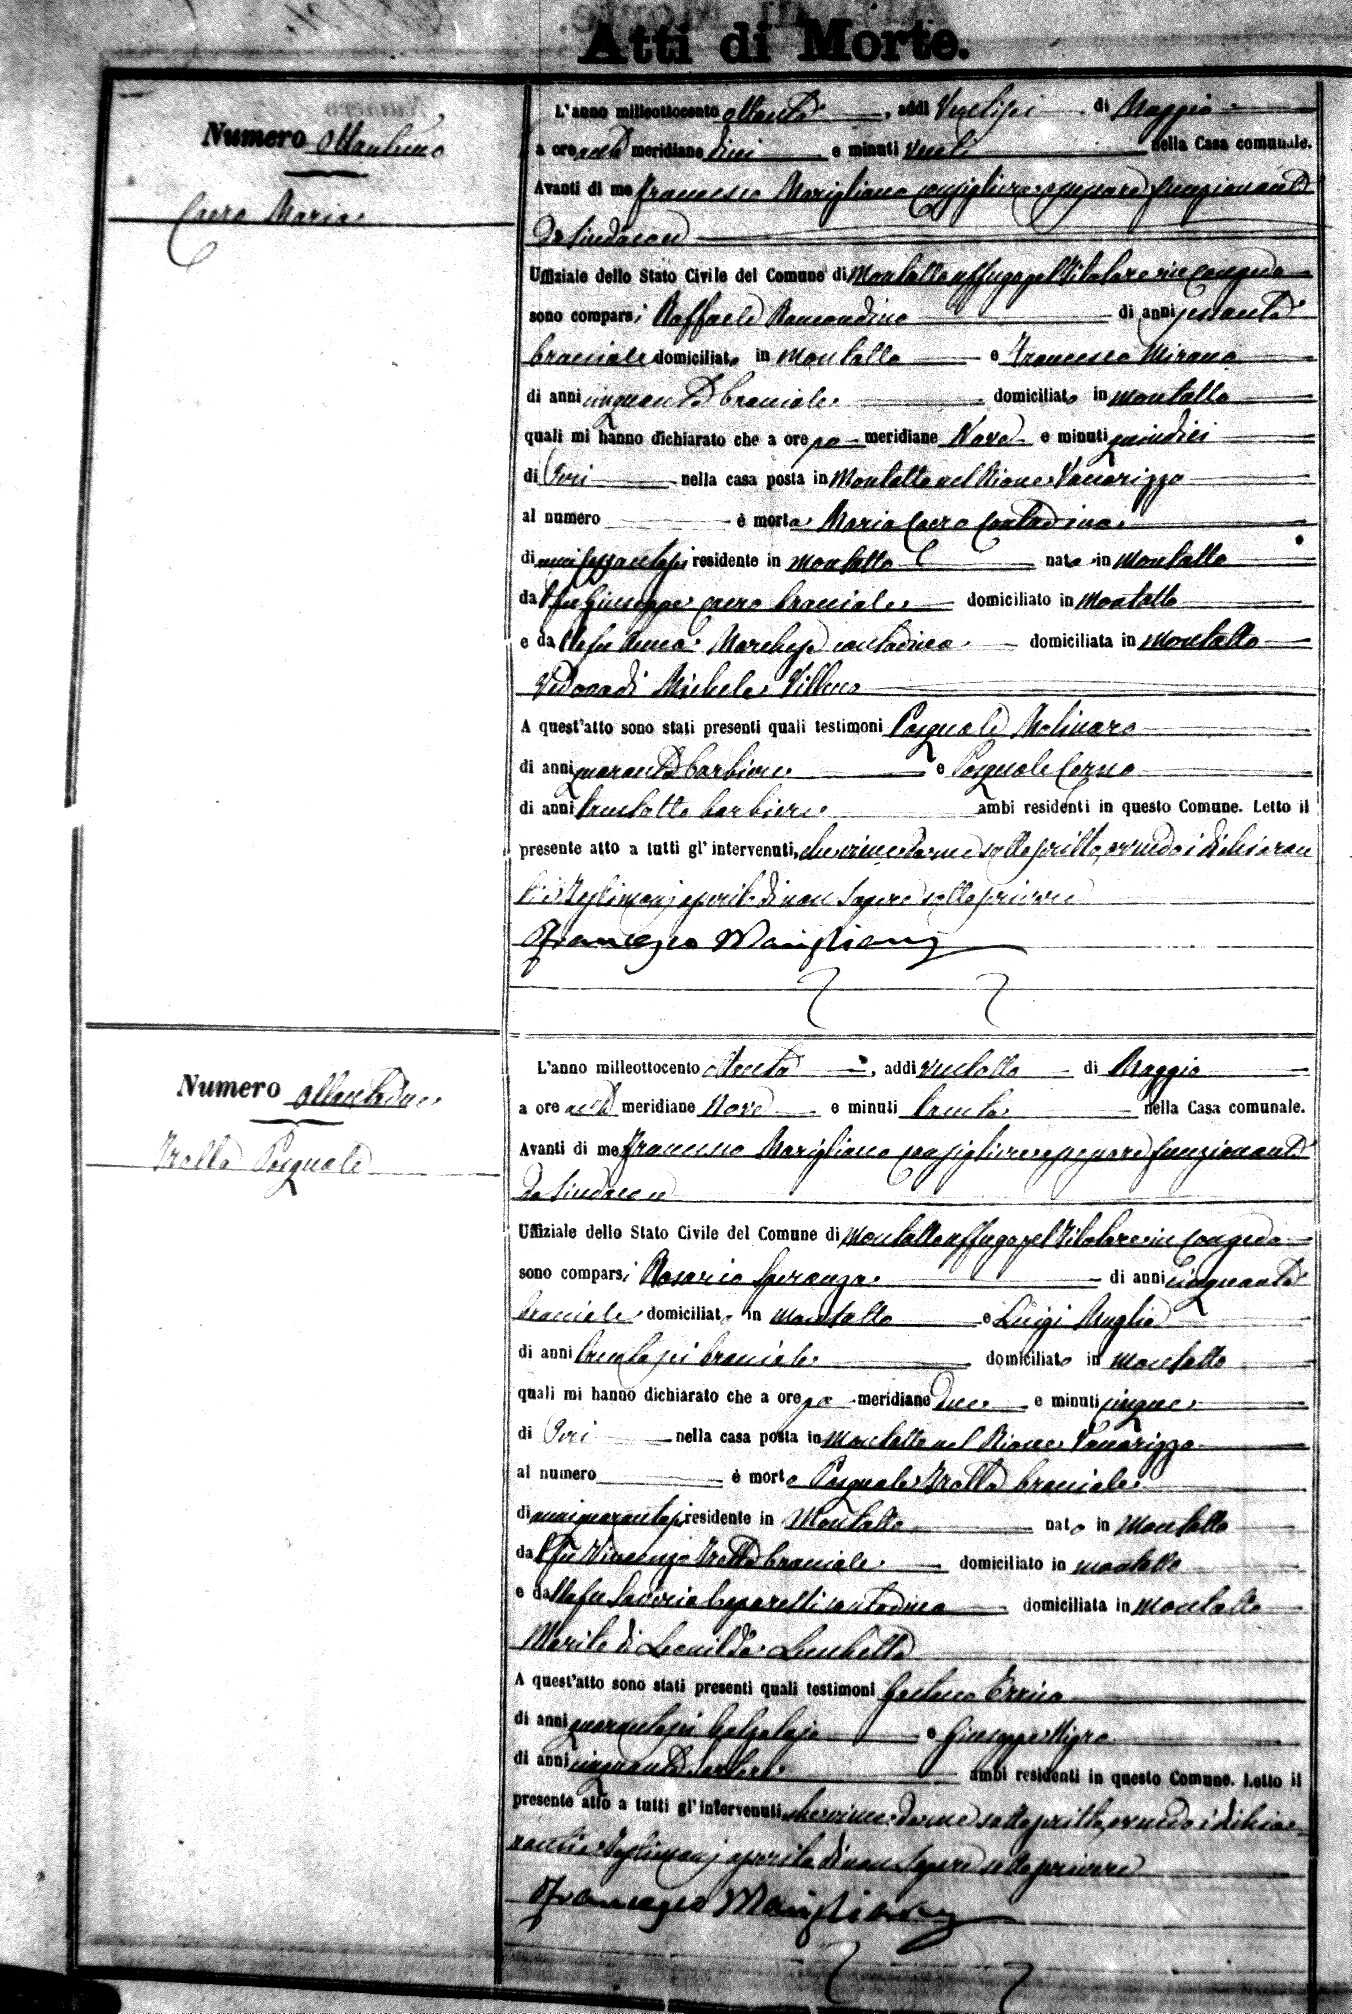 Atti di Morte.
Numero Ottantuno
Caera Maria
L'anno milleottocento ottanta, addì Ventisei di Maggio
a ore anti meridiane dieci e minuti venti nella Casa comunale.
Avanti di me Francesco Marigliano consigliere anziano funzionante
da Sindaco
Uffiziale dello Stato Civile del Comune di Montalto Uffugo pel titolare in congedo
sono comparsi Raffaele Ramondino di anni sessanta
bracciale domiciliato in Montalto e Francesco Mirano
di anni cinquanta bracciale domiciliato in Montalto
quali mi hanno dichiarato che a ore po meridiane Nove e minuti quindici
di Ieri nella casa posta in Montalto nel Rione Vaccarizzo
al numero è morta Maria Caera Contadina
di anni sessantasei residente in Montalto nata in Montalto
da fu Giuseppe Caera bracciale domiciliato in Montalto
e da lla fu Marchese contadina domiciliata in Montalto
Vedova di Michele
A quest'atto sono stati presenti quali testimoni Pasquale Molinaro
di anni quaranta barbiere e Pasquale
di anni trentotto barbiere ambi residenti in questo Comune. Letto il
presente atto a tutti gl'intervenuti, che viene da me sottoscritto, avendo i dichiaran
ti e testimonj asserito di non sapere sottoscrivere
Francesco Marigliano
Numero Ottantadue
Trotta Pasquale
L'anno milleottocento ottanta, addì ventotto di Maggio
a ore anti meridiane Nove e minuti trenta nella Casa comunale.
Avanti di me Francesco Marigliano consigliere anziano funzionante
da Sindaco
Uffiziale dello Stato Civile del Comune di Montalto Uffugo pel titolare in congedo
sono comparsi Rosario Speranza di anni cinquanta
bracciale domiciliato in Montalto e Luigi Muglia
di anni trentasei bracciale domiciliato in Montalto
quali mi hanno dichiarato che a ore po meridiane due e minuti cinque
di Ieri nella casa posta in Montalto nel Rione Vaccarizzo
al numero è morto Pasquale Trotta bracciale
di anni quarantasei residente in Montalto nato in Montalto
da l fu Vincenzo Trotta bracciale domiciliato in Montalto
e da lla fu Saveria contadina domiciliata in Montalto
Marito di Leonilda
A quest'atto sono stati presenti quali testimoni Gaetano Errico
di anni quarantasei e Giuseppe Nigro
di anni cinquanta ambi residenti in questo Comune. Letto il
presente atto a tutti gl'intervenuti, che viene da me sottoscritto, avendo i dichia-
ranti e testimonj asserito di non sapere sottoscrivere
Francesco Marigliano